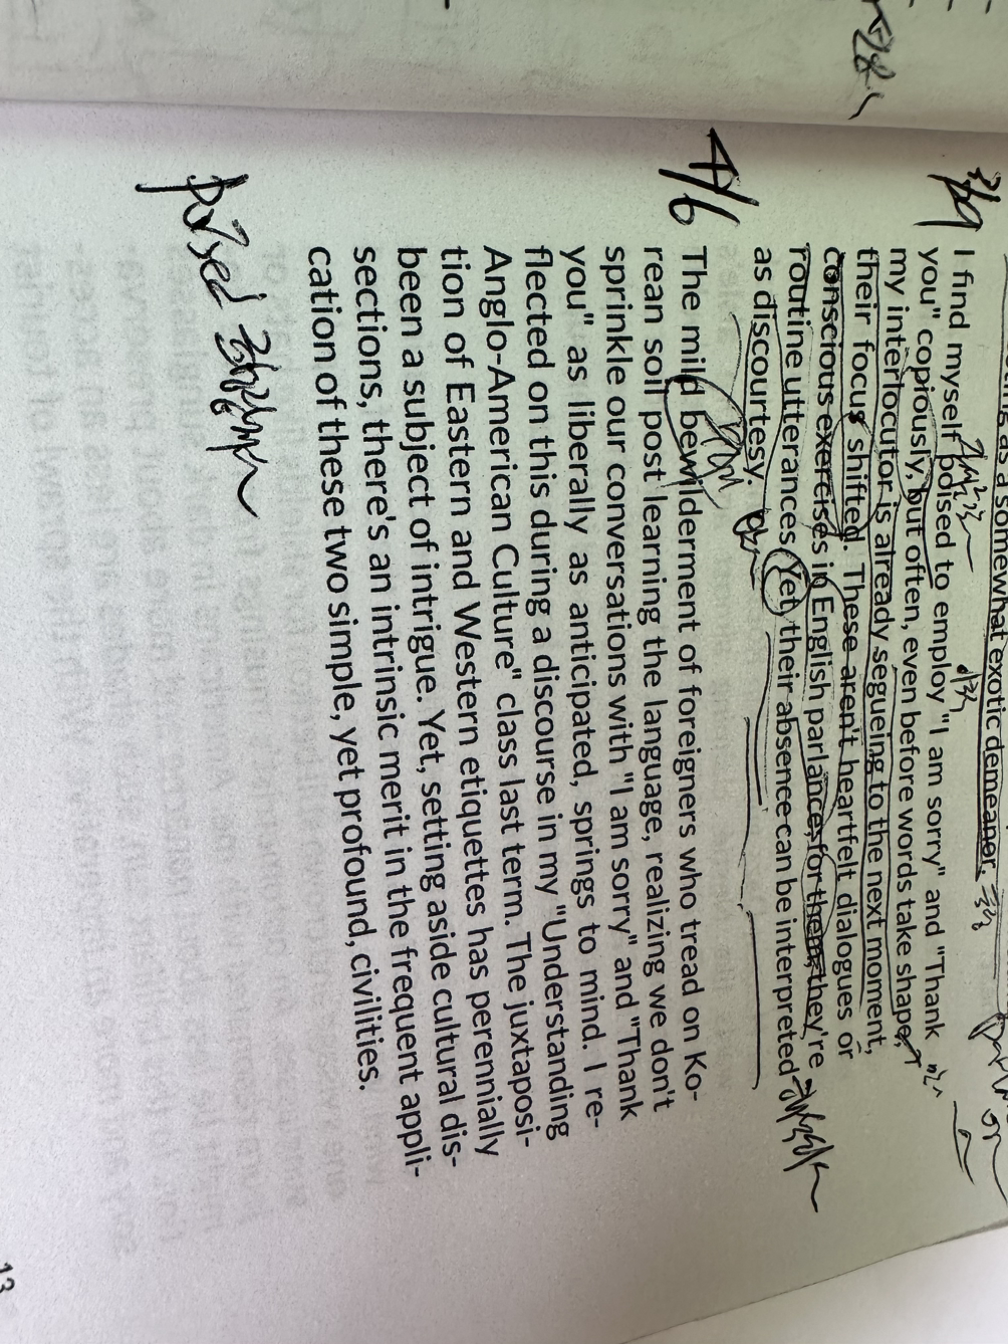 as a somewhat exotic demeaner.
3/29
I find myself poised to employ "I am sorry" and "Thank
you" copiously, but often, even before words take shape,
my interlocutor is already segueing to the next moment,
their focus shifted. These aren't heartfelt dialogues or
conscious exercises in English parlance, for them, they're
routine utterances. Yet, their absence can be interpreted
as discourtesy.
4/6
The mild bewilderment of foreigners who tread on Ko-
rean soil post learning the language, realizing we don't
sprinkle our conversations with "I am sorry" and "Thank
you" as liberally as anticipated, springs to mind. I re-
flected on this during a discourse in my "Understanding
Anglo-American Culture" class last term. The juxtaposi-
tion of Eastern and Western etiquettes has perennially
been a subject of intrigue. Yet, setting aside cultural dis-
sections, there's an intrinsic merit in the frequent appli-
cation of these two simple, yet profound, civilities.
poised
13